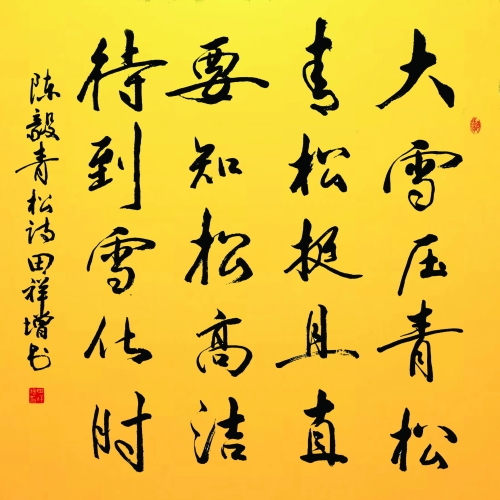 大雪压青松
青松挺且直
要知松高洁
待到雪化时
陈毅青松诗田祥增书